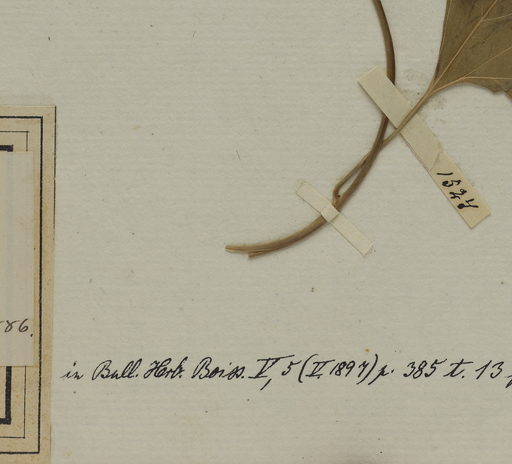 1524
86.
in Bull. Herb. Boiss. V, 5 (V. 1897) p. 385 t. 13